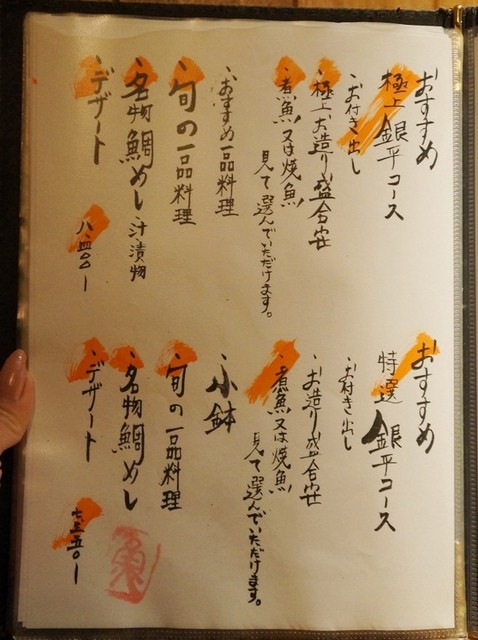 おすすめ
極上銀平コース
、お付き出し
、極上お造り盛合安
、煮魚又は焼魚
見て選んでいただけます。
、おすすめ一品料理
、旬の一品料理
、名物鯛めし 汁 漬物
、デザート
八、四〇〇ー
おすすめ
特選 銀平コース
、お付き出し
、お造り盛合安
、煮魚又は焼魚
見て選んでいただけます。
、小鉢
、旬の一品料理
、名物鯛めし
、デザート
七、三五〇ー